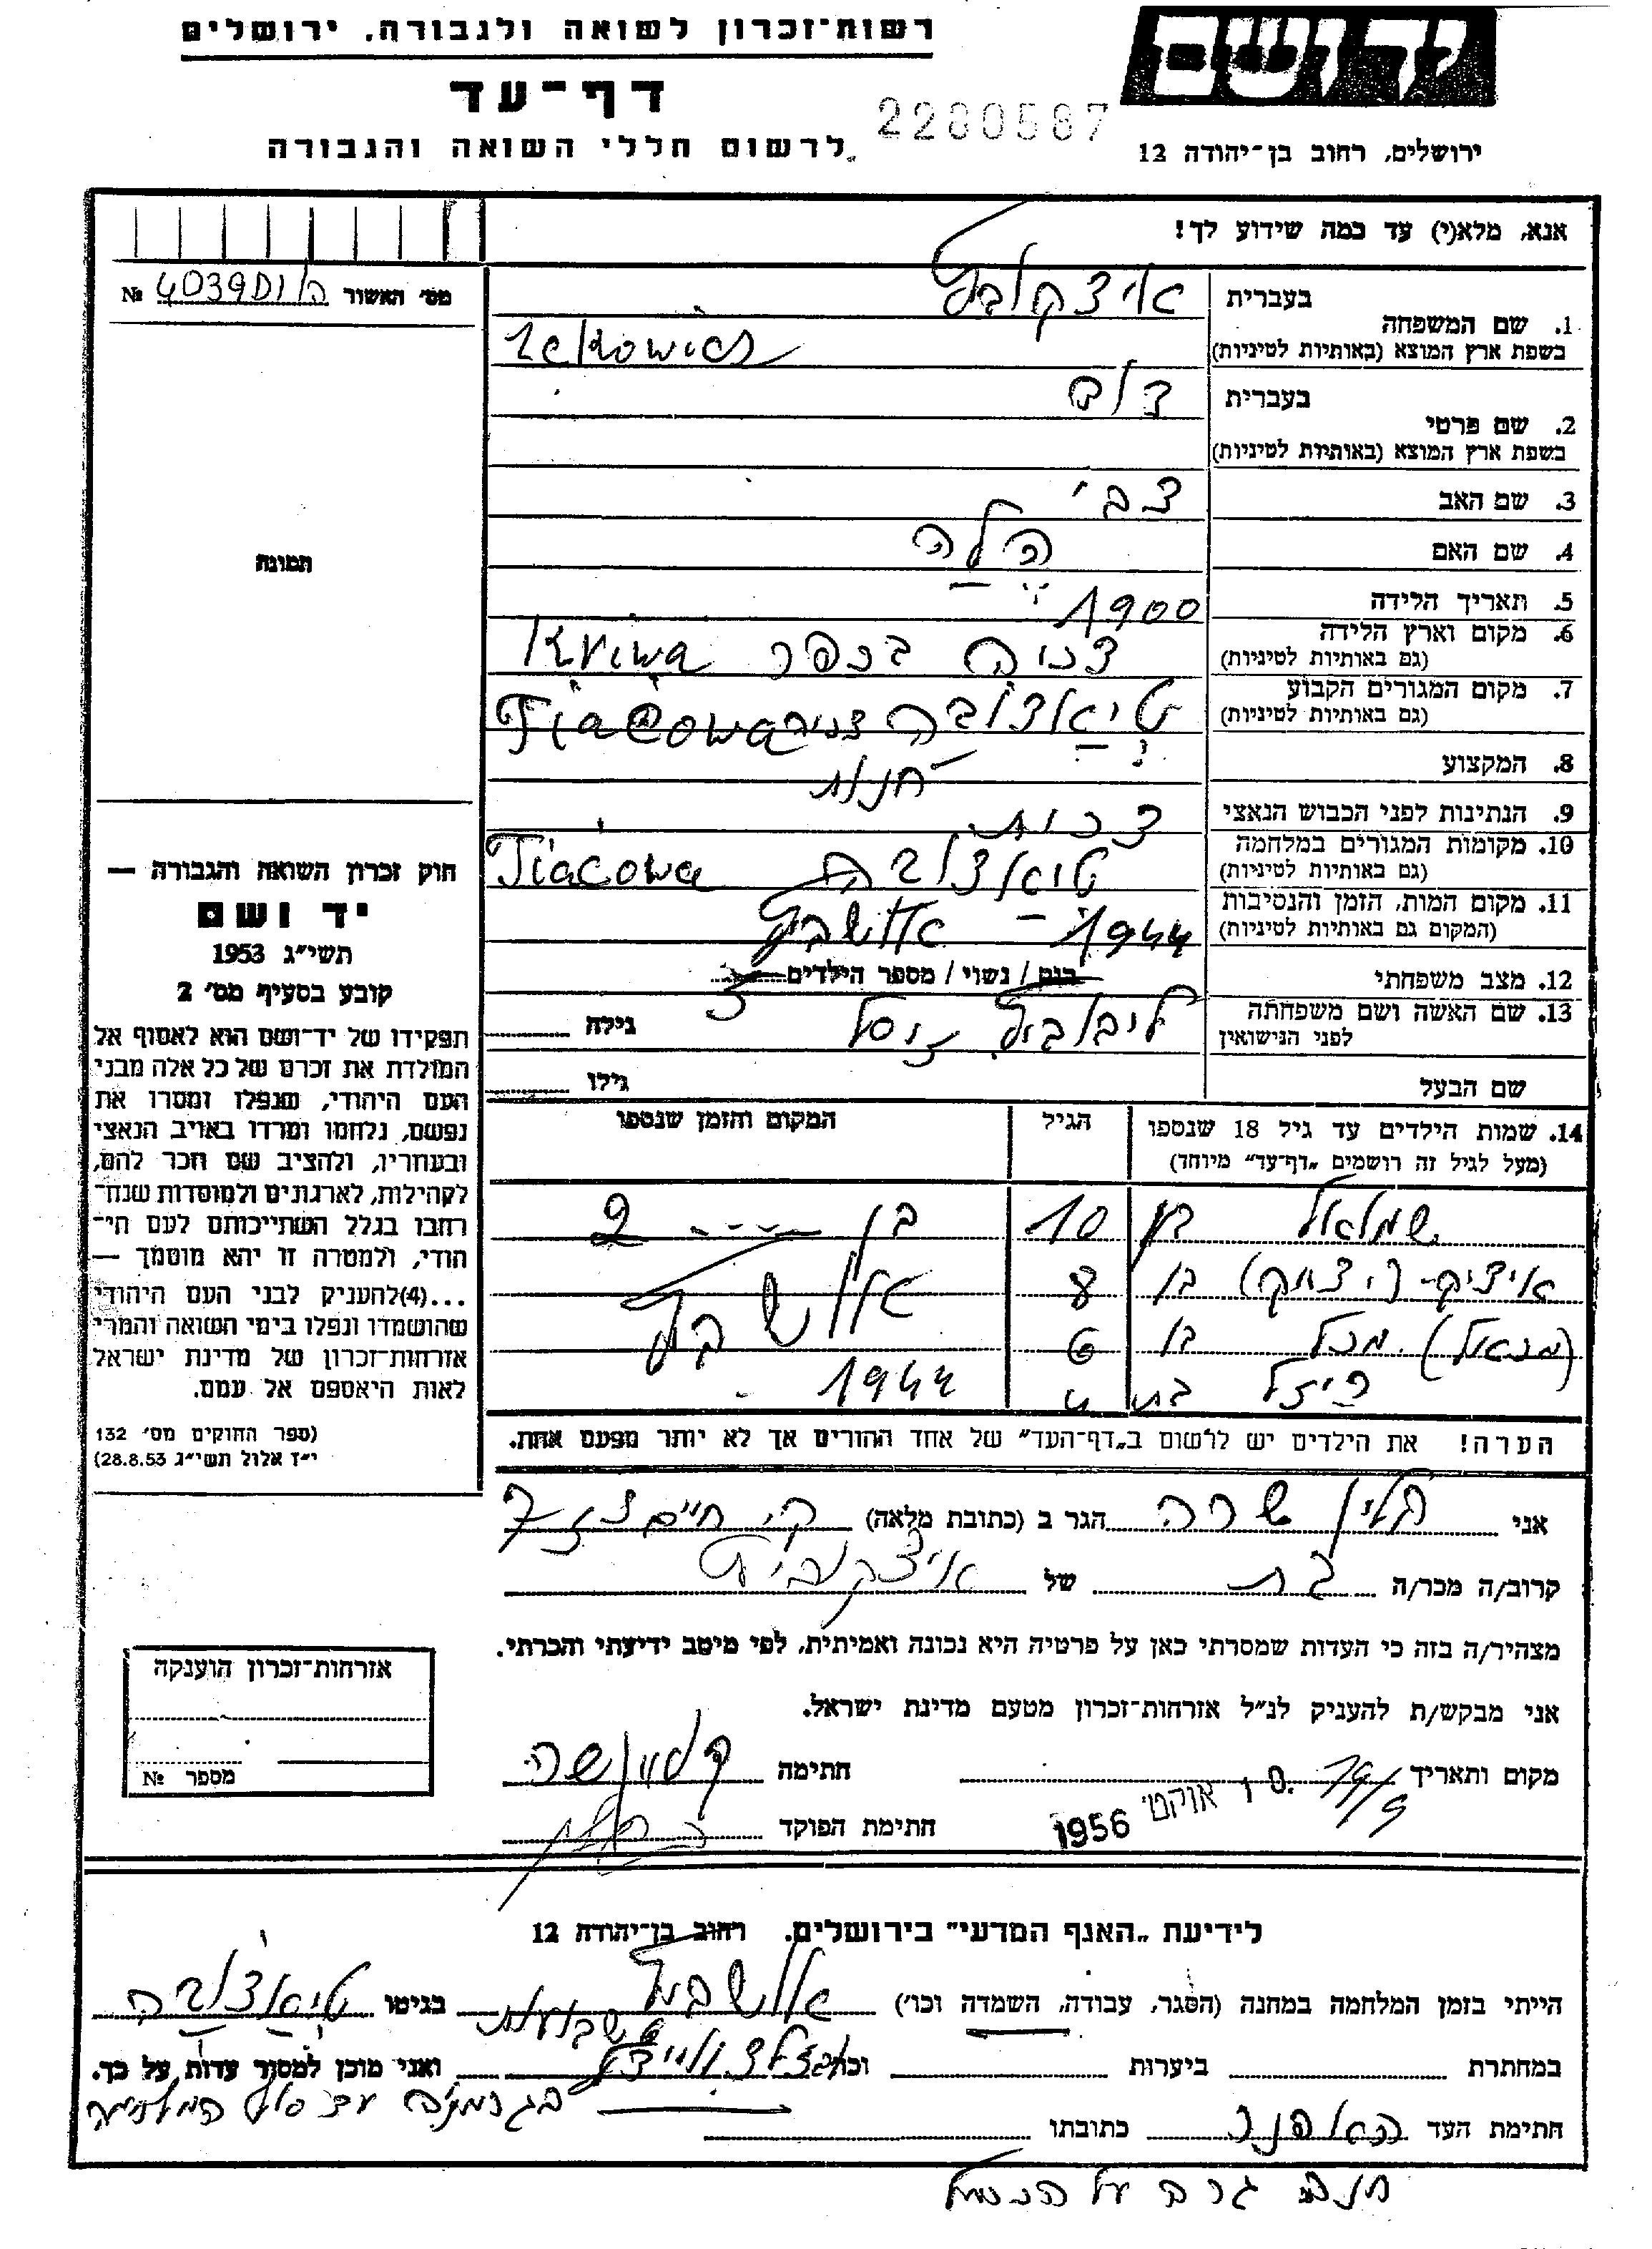 רשות־זכרון לשואה ולגבורה, ירושלים
יד ושם
דף־עד
2280587
לרשום חללי השואה והגבורה
ירושלים, רחוב בן־יהודה 12
אנא, מלא(י) עד כמה שידוע לך!
מס׳ האשור №
1. שם המשפחה
בעברית איצקוביץ
בשפת ארץ המוצא (באותיות לטיניות)
2. שם פרטי
בעברית
בשפת ארץ המוצא (באותיות לטיניות)
3. שם האב צבי
4. שם האם
5. תאריך הלידה 1900
6. מקום וארץ הלידה בכפר Kriwa
(גם באותיות לטיניות)
7. מקום המגורים הקבוע טיאצובה Tiacowa
(גם באותיות לטיניות)
8. המקצוע
9. הנתינות לפני הכבוש הנאצי
10. מקומות המגורים במלחמה טיאצובה Tiacowa
(גם באותיות לטיניות)
11. מקום המות, הזמן והנסיבות 1944 – אושביץ
(המקום גם באותיות לטיניות)
12. מצב משפחתי בנם / נשוי / מספר הילדים
13. שם האשה ושם משפחתה
לפני הנישואין
גילה
שם הבעל
גילו
14. שמות הילדים עד גיל 18 שנספו
(מעל לגיל זה רושמים „דף־עד” מיוחד)
הגיל
המקום והזמן שנספו
שמואל בן 10
איציק־(יצחק) בן 8
(מכאל) מכל בן 6
רייזל בת
אושביץ
1944
הערה! את הילדים יש לרשום ב„דף־העד” של אחד ההורים אך לא יותר מפעם אחת.
תמונה
חוק זכרון השואה והגבורה —
יד ושם
תשי״ג 1953
קובע בסעיף מס׳ 2
תפקידו של יד־ושם הוא לאסוף אל
המולדת את זכרם של כל אלה מבני
העם היהודי, שנפלו ומסרו את
נפשם, נלחמו ומרדו באויב הנאצי
ובעוזריו, ולהציב שם וזכר להם,
לקהילות, לארגונים ולמוסדות שנח־
רחבו בגלל השתייכותם לעם הי־
הודי, ולמטרה זו יהא מוסמך —
...(4)להעניק לבני העם היהודי
שהושמדו ונפלו בימי השואה והמרי
אזרחות־זכרון של מדינת ישראל
לאות היאספם אל עמם.
(ספר החוקים מס׳ 132
י״ז אלול תשי״ג 28.8.53)
אני קליין שרה הגר ב (כתובת מלאה) ק. חיים
קרוב/ה מכר/ה בת של איצקוביץ
מצהיר/ה בזה כי העדות שמסרתי כאן על פרטיה היא נכונה ואמיתית, לפי מיטב ידיעתי והכרתי.
אני מבקש/ת להעניק לנ״ל אזרחות־זכרון מטעם מדינת ישראל.
מקום ותאריך 19/9 חתימה
10 אוקט׳ 1956
חתימת הפוקד
אזרחות־זכרון הוענקה
מספר №
לידיעת „האגף המדעי” בירושלים. רחוב בן־יהודה 12
הייתי בזמן המלחמה במחנה (הסגר, עבודה, השמדה וכו׳) אושביץ בגיטו טיאצובה
במחתרת ביערות וכו׳ ואני מוכן למסור עדות על כך.
חתימת העד כתובתו